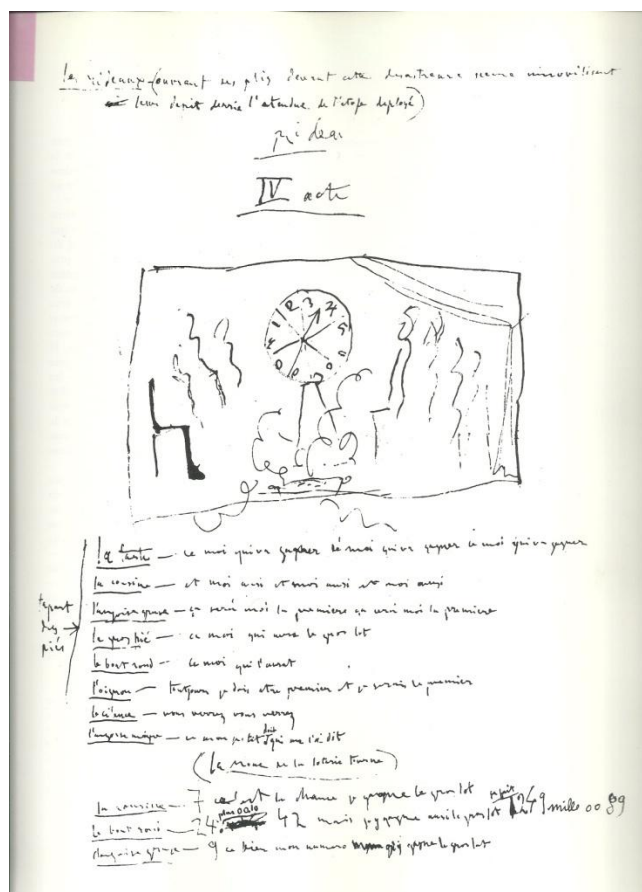 les rideaux (ouvrant ses plis devant cette desastreuse scene immovilisent
leur depit derrie l'etendue de l'etofe deployé)
rideau
IV acte
1 2 3 4 5
la tarte — ce moi qui va gagner cé moi qui va gagner cé moi qui va gagner
la cousine — et moi ausi et moi ausi et moi ausi
l'angoise grase — ça sera moi la premiere ça sera moi la premiere
le gros pié — ce moi qui aura le gros lot
le bout rond — ce moi qui l'aurat
l'oignon — toutjours je dois etre premier et je serais le premier
le cilence — vous verrez vous verrez
l'angoise maigre — ce mon petit doit qui me l'a dit
des
piés
(la roue de la loterie tourne)
la cousine — 7 la chance je gagne le gros lot
le bout rond — 24 42 mais je gagne ausi le gros lot 249 mille 00 89
l'angoise grase — 9 ce bien mon numero gagne le gros lot